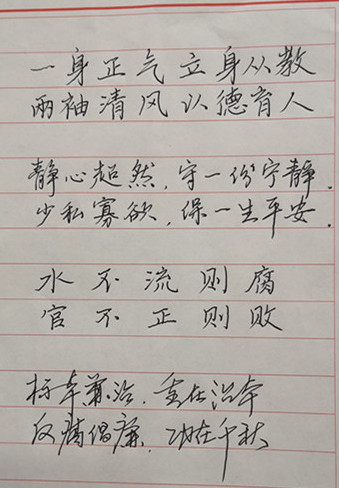 一身正气立身从教
两袖清风以德育人
静心超然,守一份宁静.
少私寡欲,保一生平安.
水不流则腐
官不正则败
标本兼治,重在治本
反腐倡廉,功在千秋